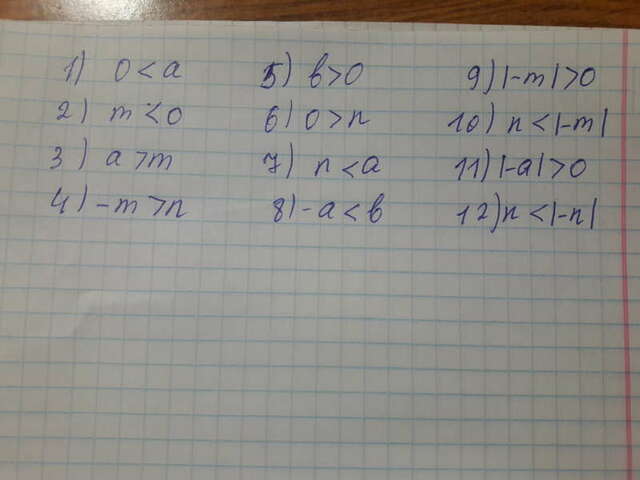 1) 0 < a 5) b > 0 9) |-m| > 0
2) m < 0 6) 0 > n 10) n < |-m|
3) a > m 7) n < a 11) |-a| > 0
4) -m > n 8) -a < b 12) n < |-n|